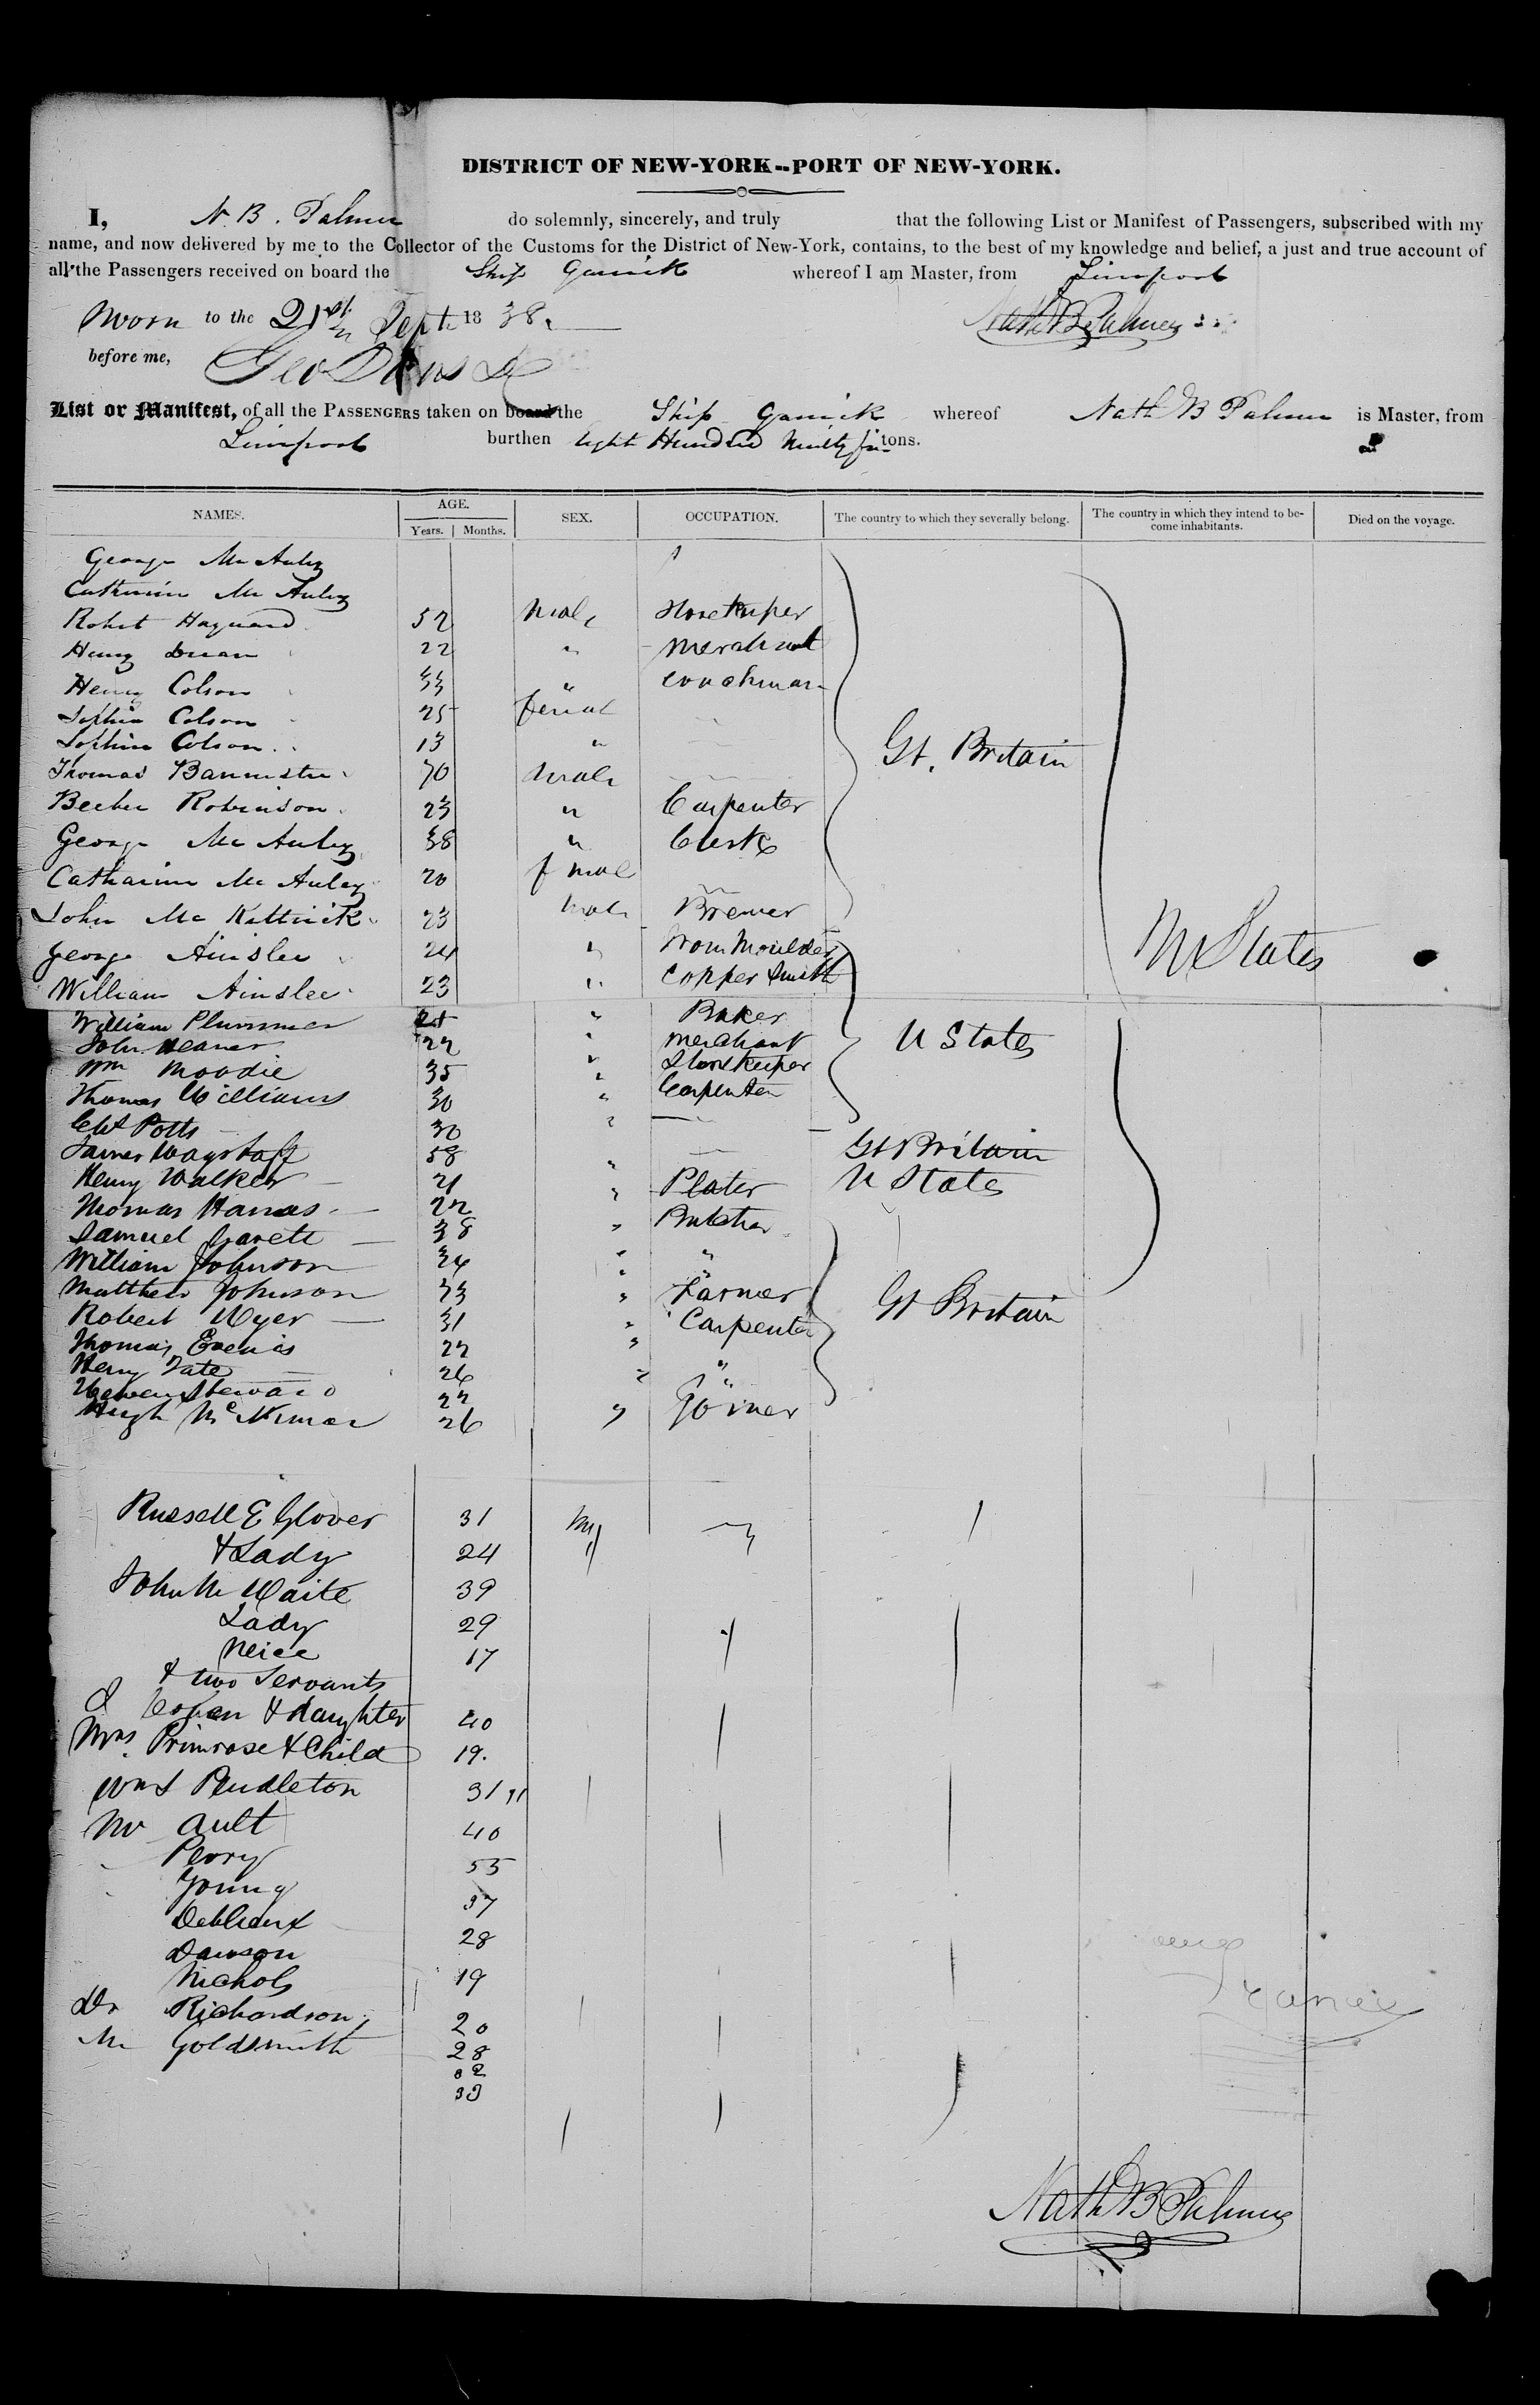 DISTRICT OF NEW-YORK--PORT OF NEW-YORK.
I, N. B. Palmer do solemnly, sincerely, and truly that the following List or Manifest of Passengers, subscribed with my
name, and now delivered by me to the Collector of the Customs for the District of New-York, contains, to the best of my knowledge and belief, a just and true account of
all the Passengers received on board the Ship Garrick whereof I am Master, from Liverpool
Sworn to the 21st Sept. 1838. Nath B Palmer
before me, Geo
List or Manifest, of all the PASSENGERS taken on board the Ship Garrick whereof Nath B Palmer is Master, from
Liverpool burthen Eight Hundred Ninety tons.
NAMES. AGE. Years. Months. SEX. OCCUPATION. The country to which they severally belong. The country in which they intend to become inhabitants. Died on the voyage.
George Mc Auley
Catharine Mc Auley
Robet Hayward 52 Male Storekeeper
Henry 22 " Merchant
Henry Colson 33 " Coachman
Sophia Colson 25 femal
Sophia Colson 13 " Gt. Britain
Thomas Bannister 70 Male
Robinson 23 " Carpenter
George Mc Auley 38 " Clerk
Catharine Mc Auley 20 f male
John Mc Kittrick 23 Male Brewer
George Ainslee 24 " Iron Moulder U States
William Ainslee 23 " Copper Smith
William Plummer " Baker
John 22 " Merchant U States
Wm Moodie 35 " Storekeeper
Thomas Williams 30 " Carpenter
Potts 30 "
James Wagstaff 58 " Gt Britain
Henry Walker 21 " Plater U States
Thomas Harras 22 " Butcher
Samuel Garett 38 " "
William Johnson " "
Matthew Johnson 33 " Farmer Gt Britain
Robert Wyer 31 " Carpenter
Thomas Evenis 22 " "
Henry Tate 26 " "
Steward 22
Hugh Mc 26 " Joiner
Russell E Glover 31
& Lady 24
John M Waite 39
Lady 29
Neice 17
& two Servants
Cohen & daughter 40
Mrs. Primrose & Child 19.
Wm S Pendleton 31
Mr Ault 40
Perry 55
Young 37
28
Dawson 19
Nichols 20
Dr Richardson 28
Mr Goldsmith
Nath B Palmer